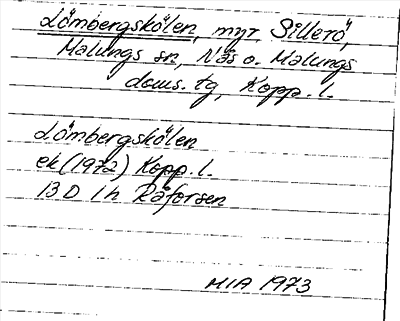 Lömbergskölen, myr Sillerö,
Malungs sn, Näs o. Malungs
doms. tg, Kopp. l.
Lömbergskölen
ek (1972) Kopp. l.
13 D 1 h Råforsen
MIA 1973